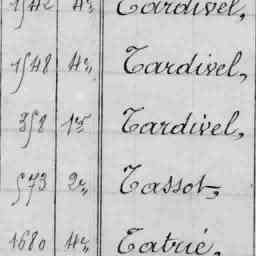 1542 4e, Tardivel,
1548 4e, Tardivel,
358 1er Tardivel,
573 2e, Tassot,
1680 4e, Tatrié,